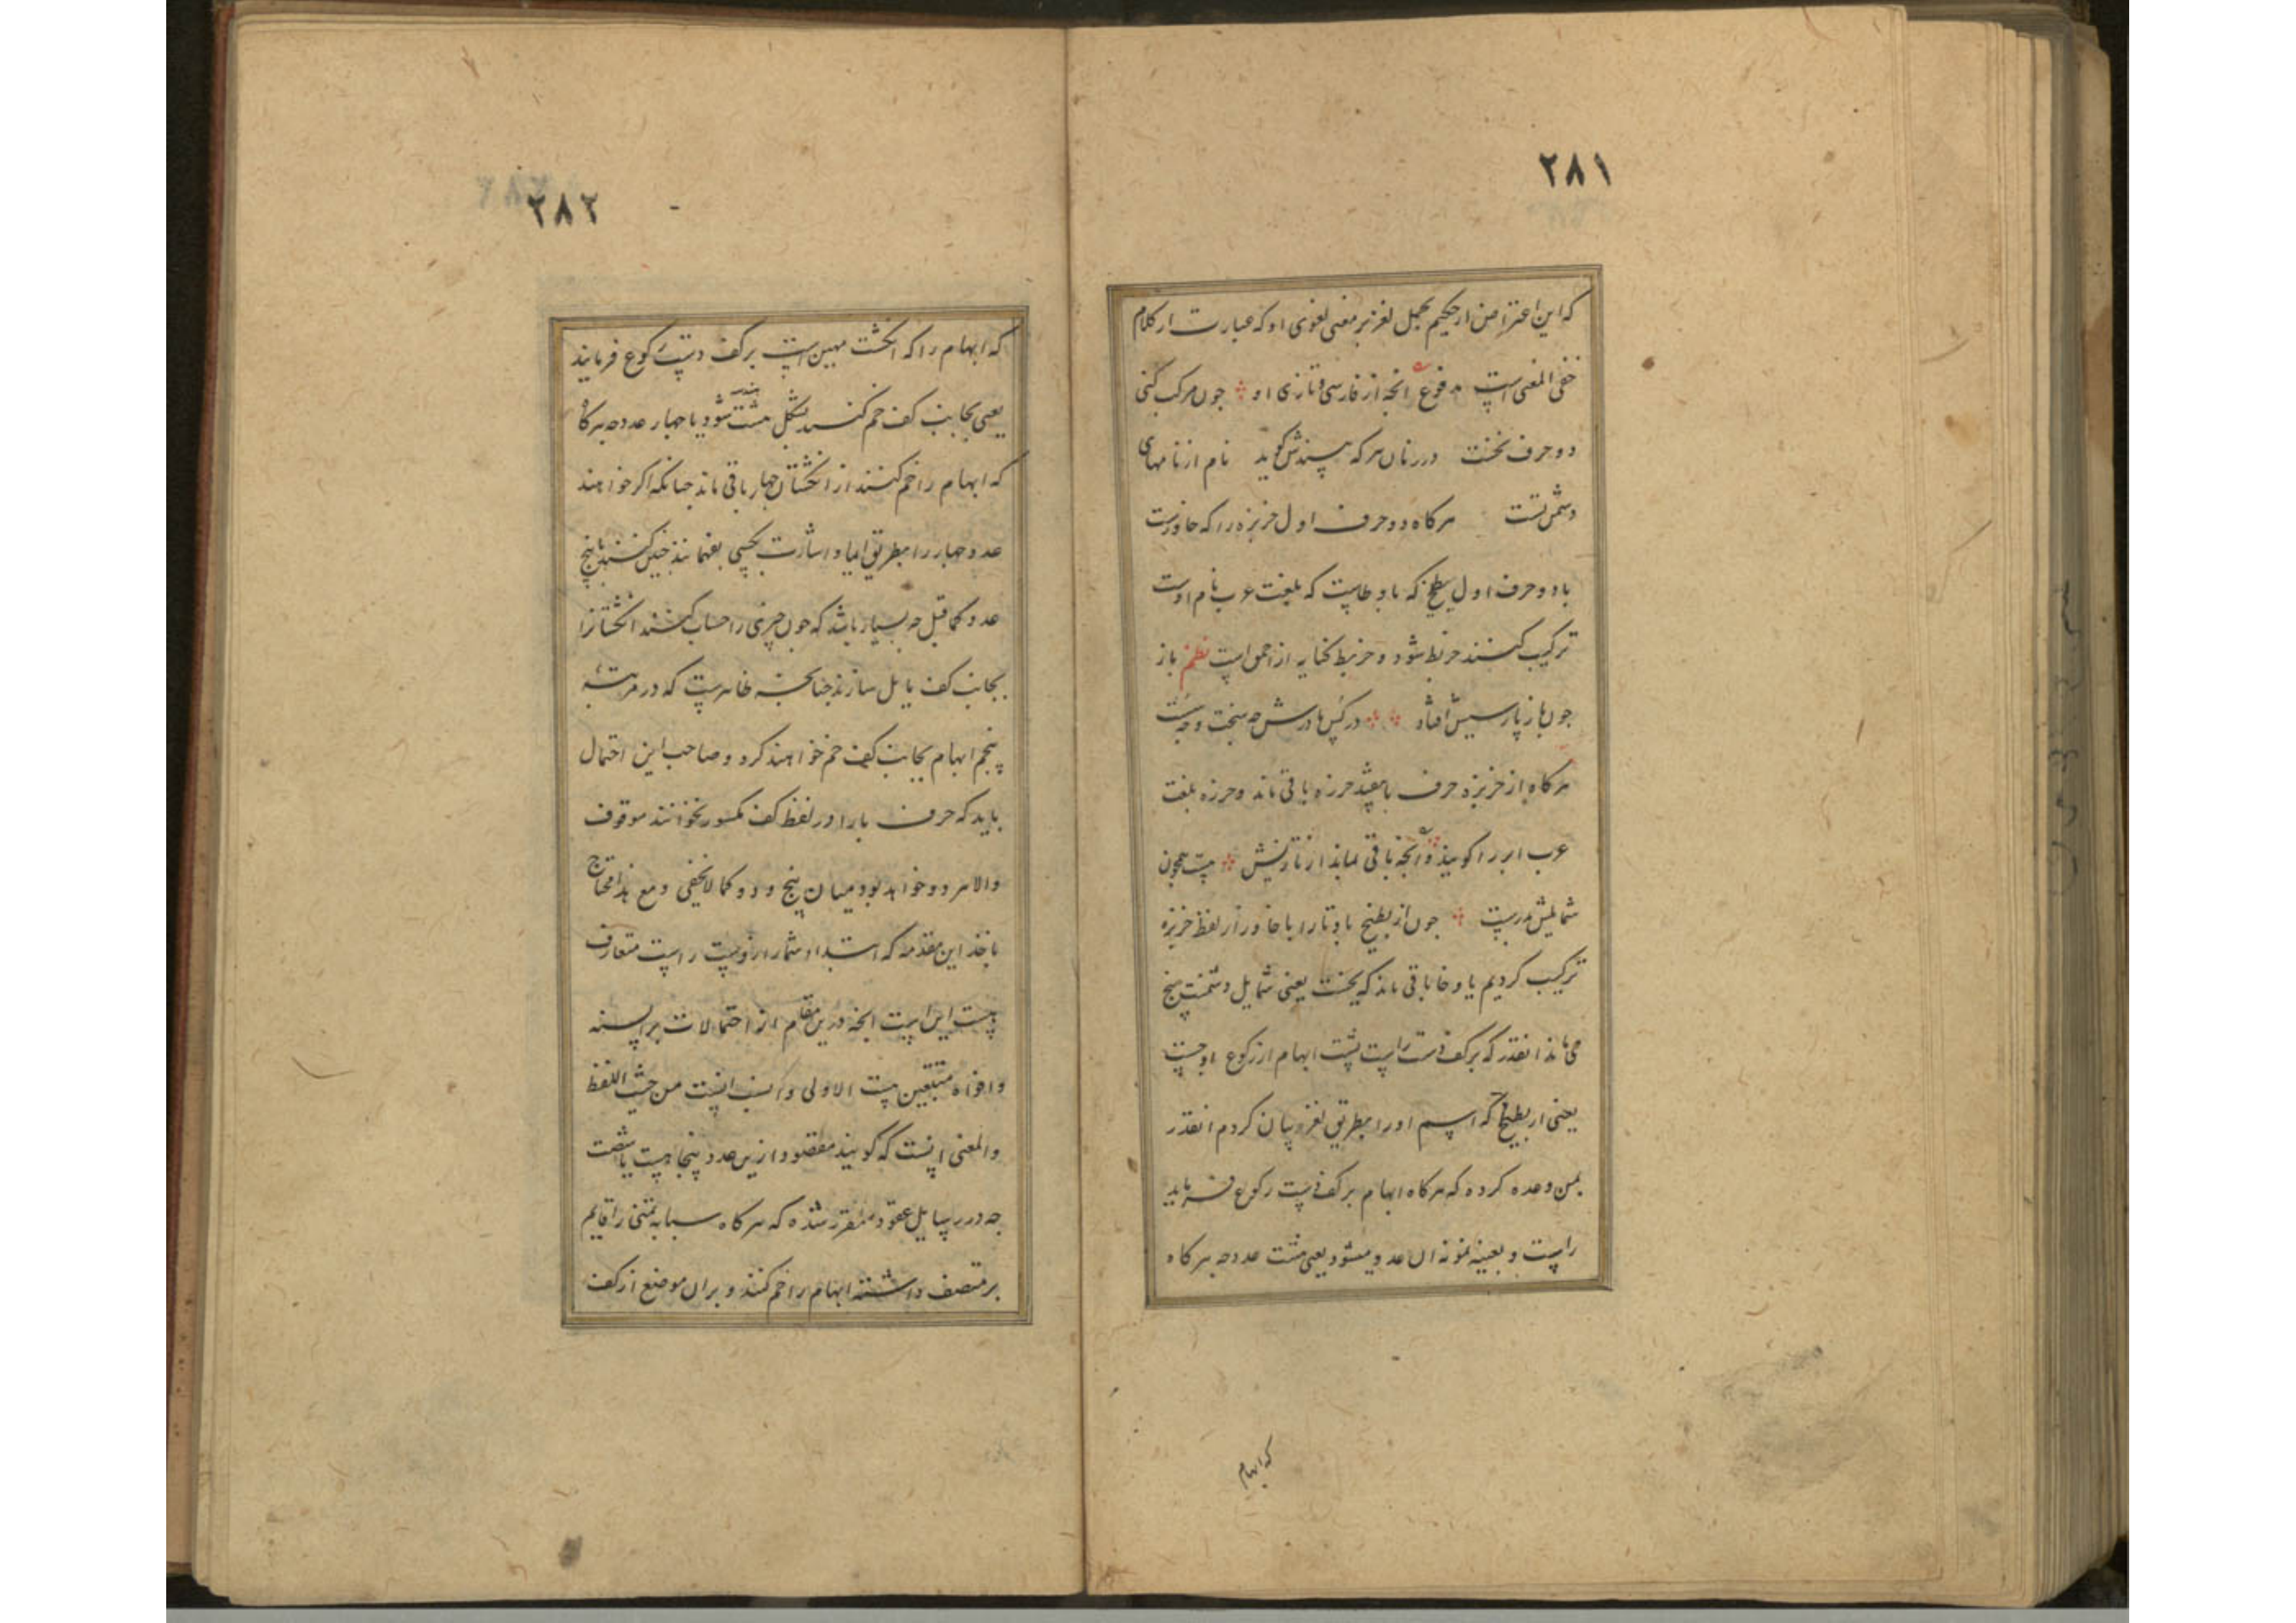 ۲۸۱
که این اعتراض از حکیم بحمل لغز بر معنی لغوی او که عبارت از کلام
خفی المعنی است مدفوع انجه از فارسی و تازی او جون مرکب کنی
دو حرف نخست در زنان هر که بپسندش کوید نام از نامهای
دشمن تست هرکاه دو حرف اول خربزه را که خا و راست
با دو حرف اول بطیخ که با و طاست که بلغت عرب نام اوست
ترکیب کنند خربط شود و خربط کنایه از احمق است نظم باز
جون باز پارسیش افتاد در پس مادرش جه سخت و جه سست
هرکاه از خربزه حرف با بیفتد خرزه باقی ماند و خرزه بلغت
عرب ابر را کویند و آنجه باقی بماند از تازیش هست همجون
شمایلش بدرست جون از بطیخ با و تا را با خا و را از لفظ خربزه
ترکیب کردیم یا و خا باقی ماند که یخست یعنی شمایل دشمنت یخ
می ماند انقدر که بر کف دست راست پشت ابهام از رکوع او جست
یعنی از بطیخ که اسم او را بطریق لغز بیان کردم انقدر
بمن وعده کرده که هرکاه ابهام بر کف دست رکوع فرماید
راست و بعینه نمونه ان عدد میشود یعنی مشت عدد جه هرکاه
که ابهام
۲۸۲
که ابهام را که انکشت مهین است بر کف دست رکوع فرمایند
یعنی بجانب کف خم کنند بشکل مشت شود یا جهار عدد جه هرکاه
که ابهام را خم کنند از انکشتان جهار باقی ماند جنانکه اکر خواهند
عدد جهار را بطریق ایما و اشارت بکسی بفهمانند جنین کنند یا پنج
عدد کما قیل جه بسیار باشد که جون جیزی را حساب کنند انکشتانرا
بجانب کف مایل سازند جنانجه ظاهرست که در مرتبه
پنجم ابهام بجانب کف خم خواهند کرد و صاحب این احتمال
باید که حرف با را در لفظ کف مکسور نخوانند موقوف
والا مردد خواهد بود میان پنج و دو کما لا یخفی و مع هذا محتاج
باخذ این مقدمه که ابتداء شمار از دست راست متعارف
هست این است انجه درین مقام از احتمالات بر السنه
و افواه متتبعین هست الاولی و انسب انیست من حیث اللفظ
والمعنی انست که کویند مقصود ازین عدد پنجاهست یا شصت
جه در رسایل عقود مقرر شده که هرکاه سبابه یمنی را قایم
بر منتصف داشته ابهام را خم کنند و بران موضع از کف